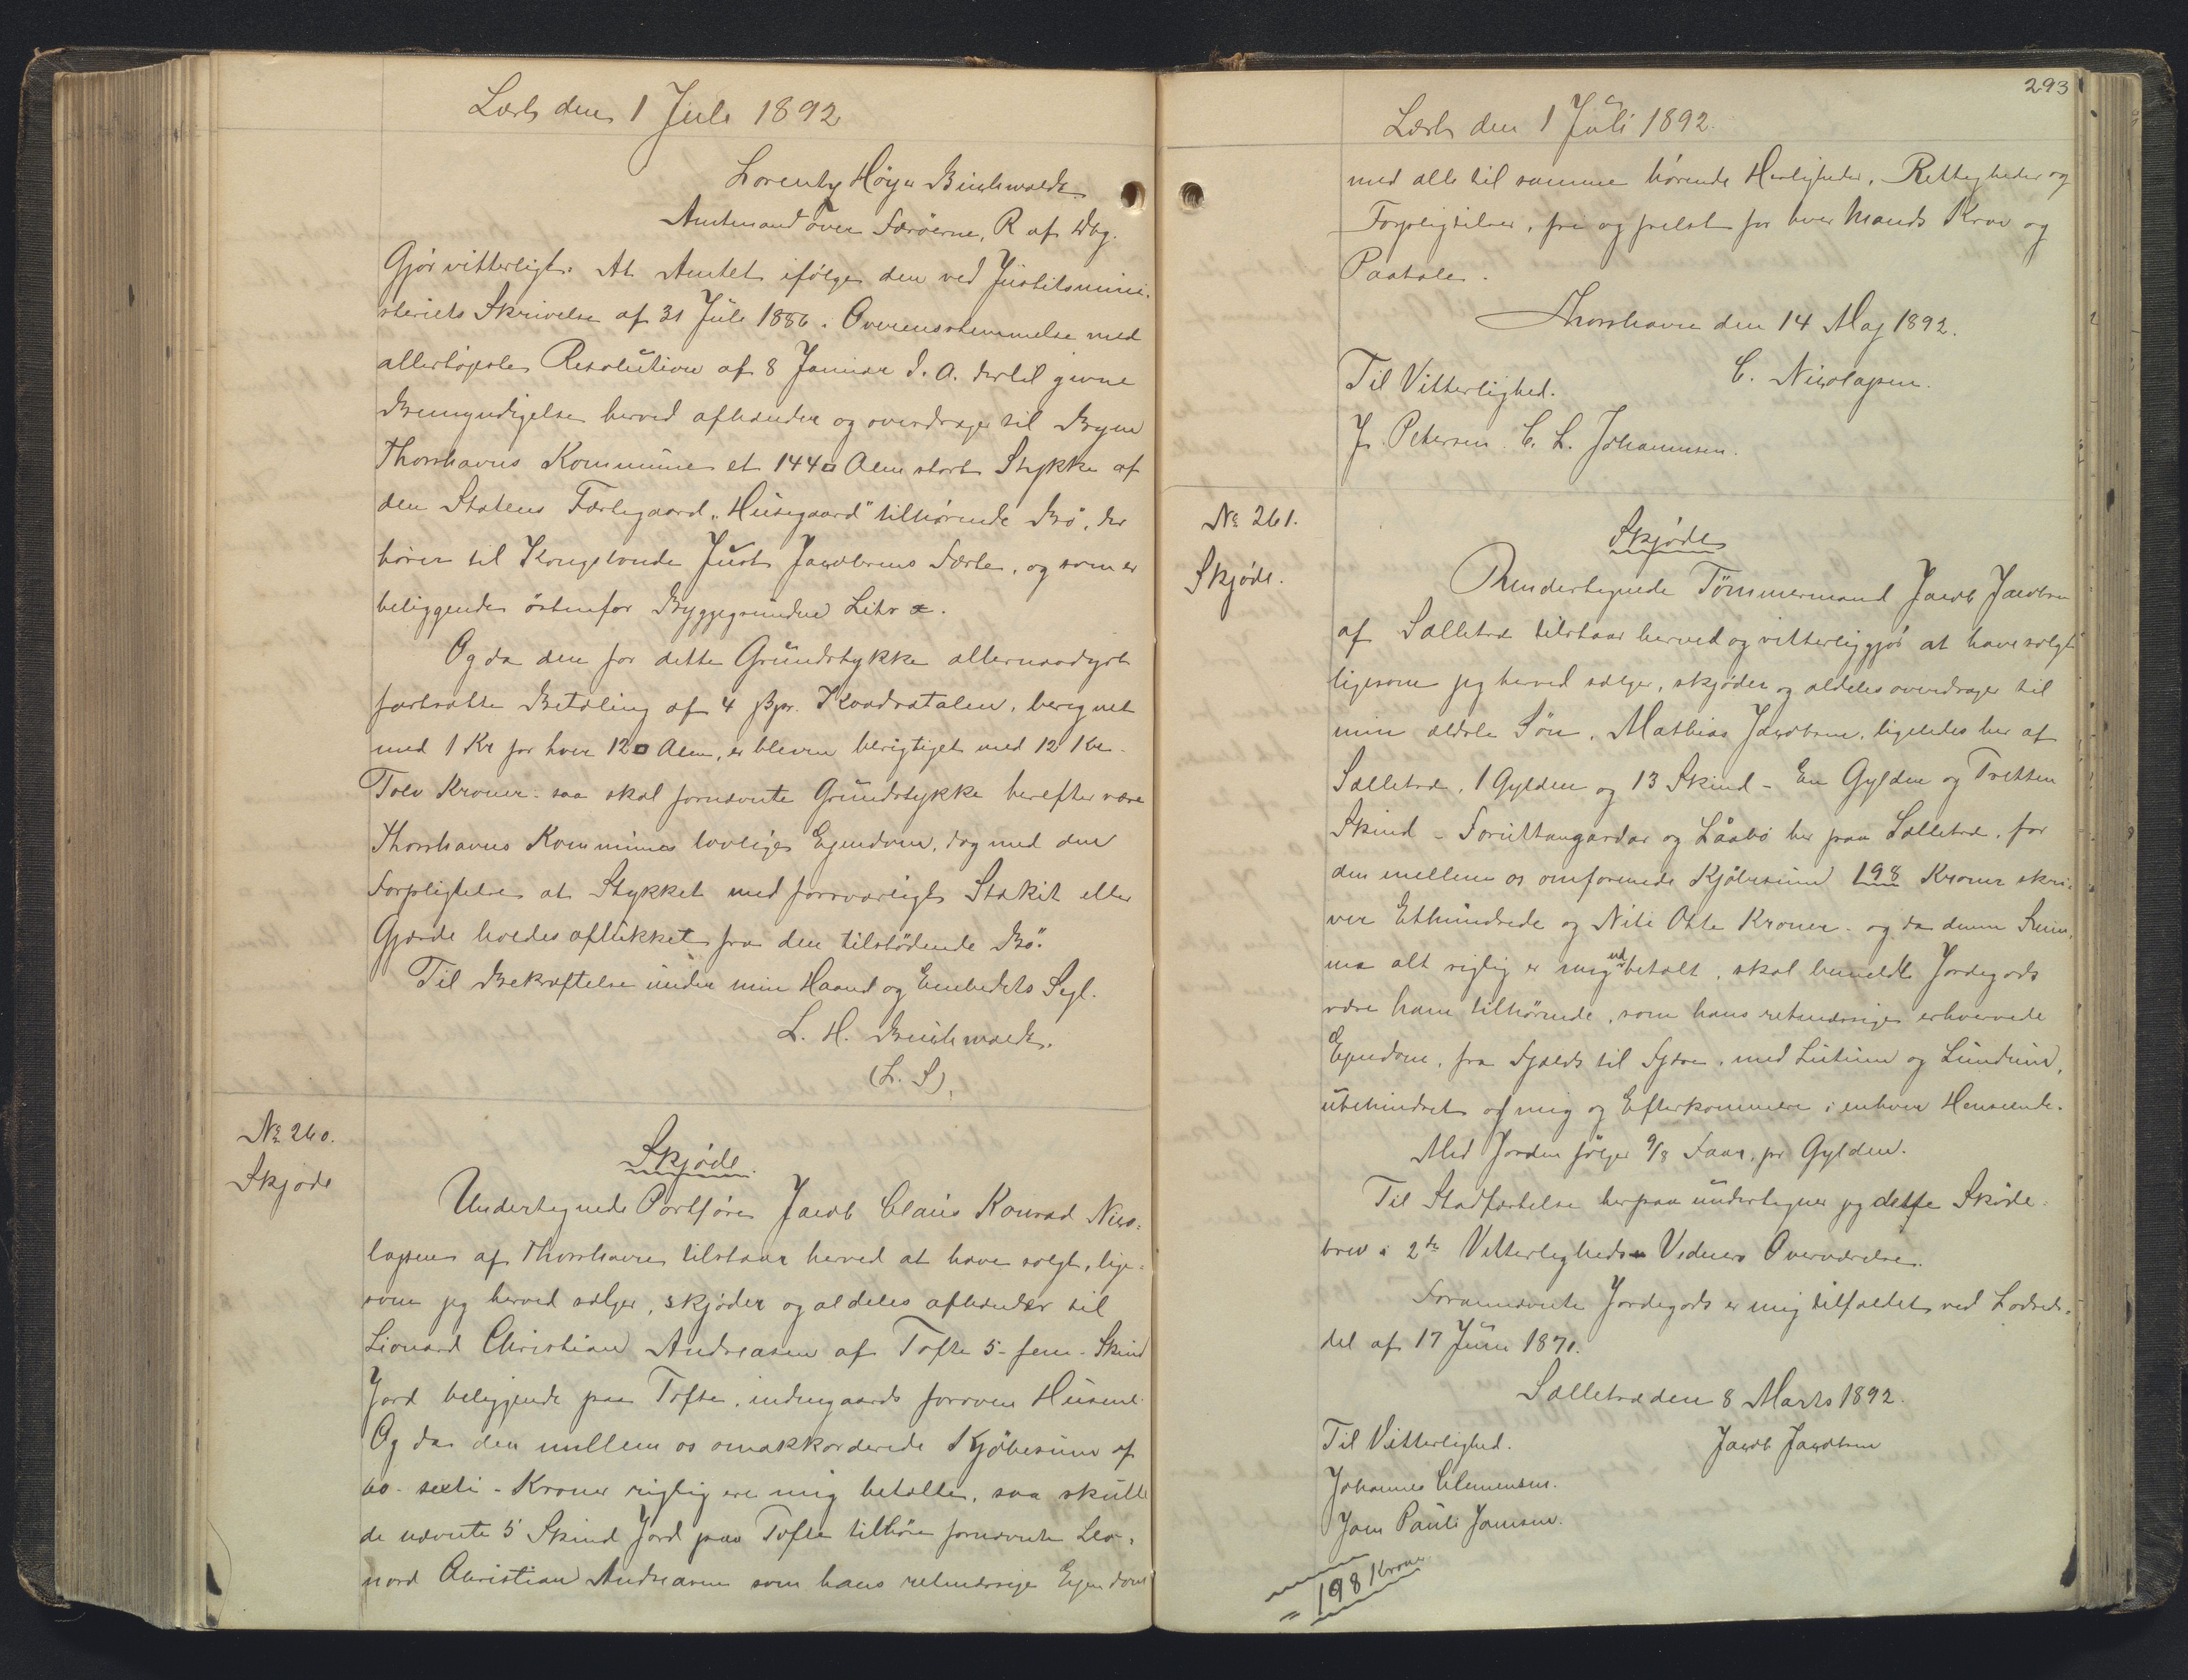 Læst den 1 Juli 1892
Lorentz Høyer Buchwaldt
Amtmand over Færöerne, R af Dbg.
Gjör vitterligt: At Amtet ifølge den ved Justitsmini-
steriets Skrivelse af 31 Juli 1886 i Overensstemmelse med
allerhöjeste Resolution af 8 Januar s. A. dertil givne
Bemyndigelse herved afhænder og overdrager til Byen
Thorshavns Kommune et 144 □ Alen stort Stykke af
den Statens Fæstegaard „Husegaard" tilhørende Bö, der
hörer til Kongsbonde Just Jacobsens Fæste, og som er
beliggende östenfor Byggegrunden Litr æ.
Og da den for dette Grundstykke allernaadigst
fastsatte Betaling af 4 ßpr. Kvadratalen, beregnet
med 1 Kr for hver 12 □ Alen, er bleven berigtiget med 12 Kr-
Tolv Kroner - saa skal fornævnte Grundstykke herefter være
Thorshavns Kommunes lovlige Ejendom, dog med den
Forpligtelse at Stykket med forsvarligt Stakit eller
Gjærde holdes aflukket fra den tilstödende Bö.
Til Bekræftelse under min Haand og Embedets Segl.
L. H. Buchwaldt.
(L. S.)
No 260.
Skjøde
Skjøde.
Undertegnede Portfører Jacob Claus Konrad Nico-
lajsen af Thorshavn tilstaar herved at have solgt, lige-
som jeg herved sælger, skjøder og aldeles afhænder til
Lionard Christian Andreasen af Tofte 5 - fem - Skind
Jord beliggende paa Tofte, indengaards forroven Husene.
Og da den mellem os omakkorderede Kjöbesum af
60 - sexti - Kroner rigtig ere mig betalte, saa skulle
de nævnte 5 Skind Jord paa Tofte tilhöre fornævnte Leo-
nard Christian Andreasen som hans retmæssige Ejendom
293
Læst den 1 Juli 1892.
med alle til samme hörende Herligheder, Rettigheder og
Forpligtelser, fri og frelst for hver Mands Krav og
Paatale.
Thorshavn den 14 Maj 1892.
C. Nicolajsen.
Til Vitterlighed.
J. Petersen. C. L. Johannesen.
No 261.
Skjøde.
Skjøde
Undertegnede Tömmermand Jacob Jacobsen
af Selletræ tilstaar herved og vitterliggjör at have solgt
ligesom jeg herved sælger, skjöder og aldeles overdrager til
min ældste Sön, Mathias Jacobsen, ligeledes her af
Selletræ, 1 Gylden og 13 Skind - En Gylden og Tretten
Skind - Foruttangardar og Låabö her paa Selletræ, for
den mellem os omforenede Kjöbesum 198 Kroner skri-
ver Ethundrede og Niti Otte Kroner - og da denne Sum-
ma alt rigtig er mig ud betalt, skal bemeldte Jordegods
være ham tilhörende, som hans retmæssige erhvervede
Ejendom, fra Fjælds til Fjære, med Lutum og Lundum,
ubehindret af mig og Efterkommere i enhver Henseende.
Med Jorden fölger 9/8 Faar, pr Gylden.
Til Stadfæstelse herpaa undertegner jeg dette Sköde-
brev i 2de Vitterligheds Vidners Overværelse.
Forannævnte Jordegods er mig tilfaldet ved Lodsed-
del af 17 Juni 1871.
Selletræ den 8 Marts 1892.
Jacob Jacobsen
Til Vitterlighed.
Johannes Clemensen.
Joen Pauli Joensen.
= 198 Kroner